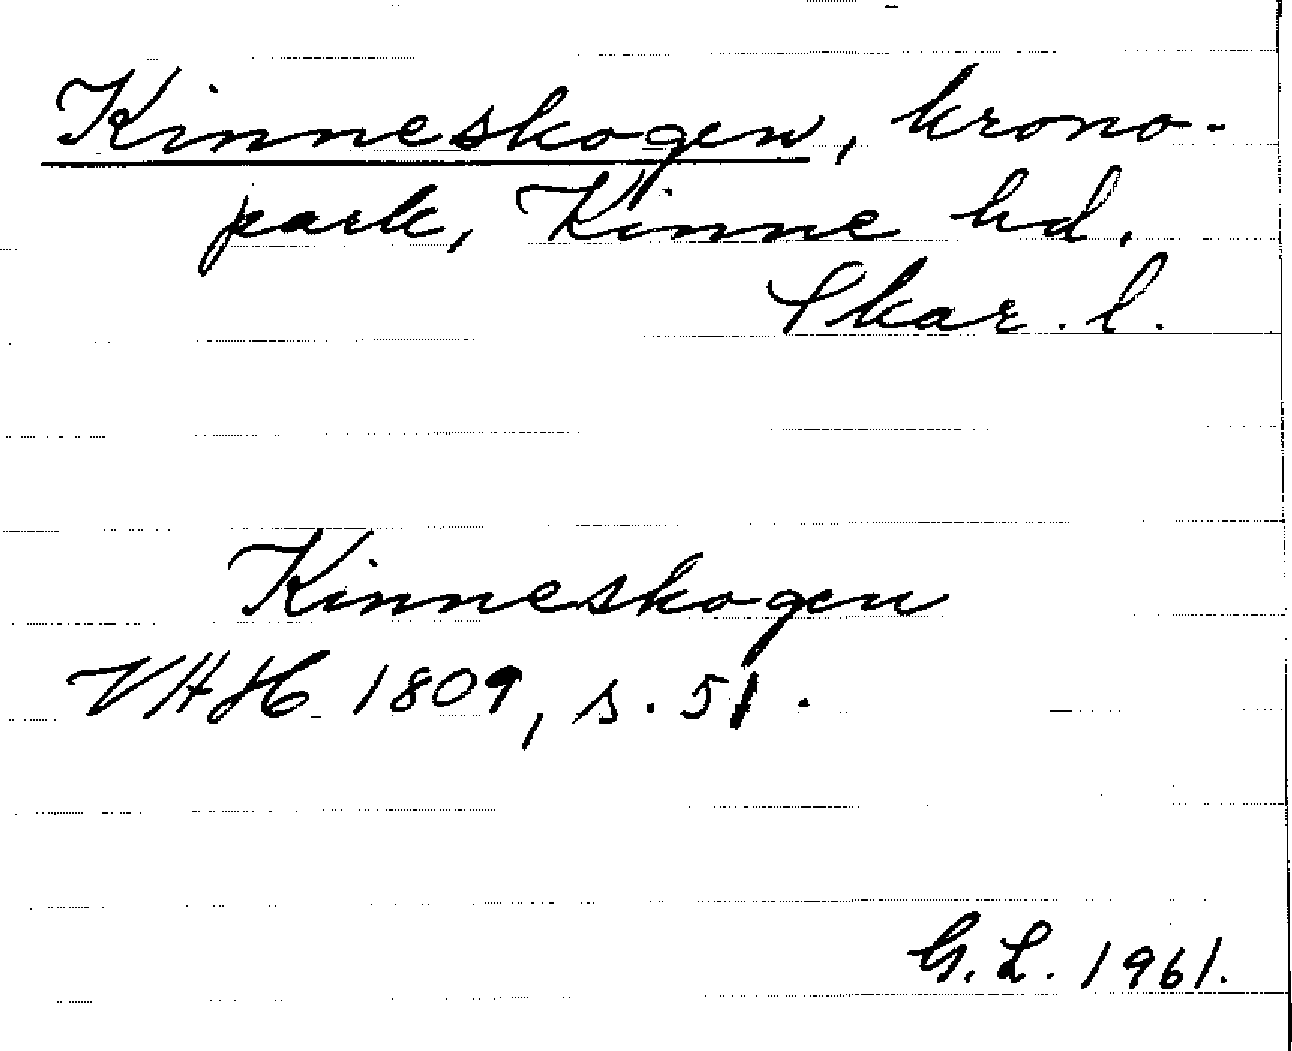 Kinneskogen, krono-
park, Kinne hd.
Skar. l.
Kinneskogen
VAH 1809, s. 51.
G. L. 1961.